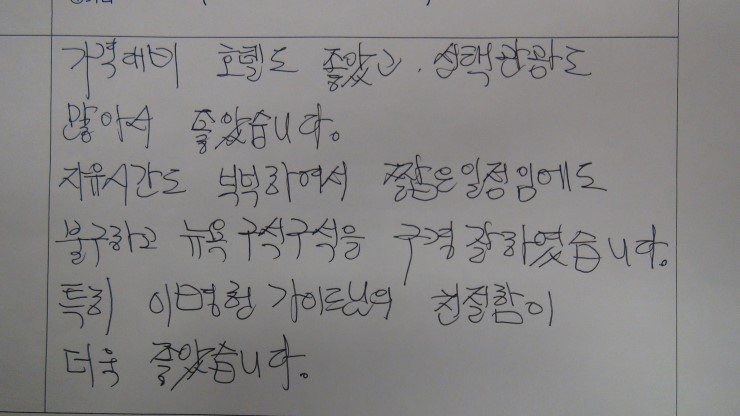 가격대비 호텔도 좋았고, 선택관광도
많아서 좋았습니다.
자유시간도 넉넉하여서 짧은일정임에도
불구하고 뉴욕 구석구석을 구경 잘하였습니다.
특히 이명형 가이드님의 친절함이
더욱 좋았습니다.